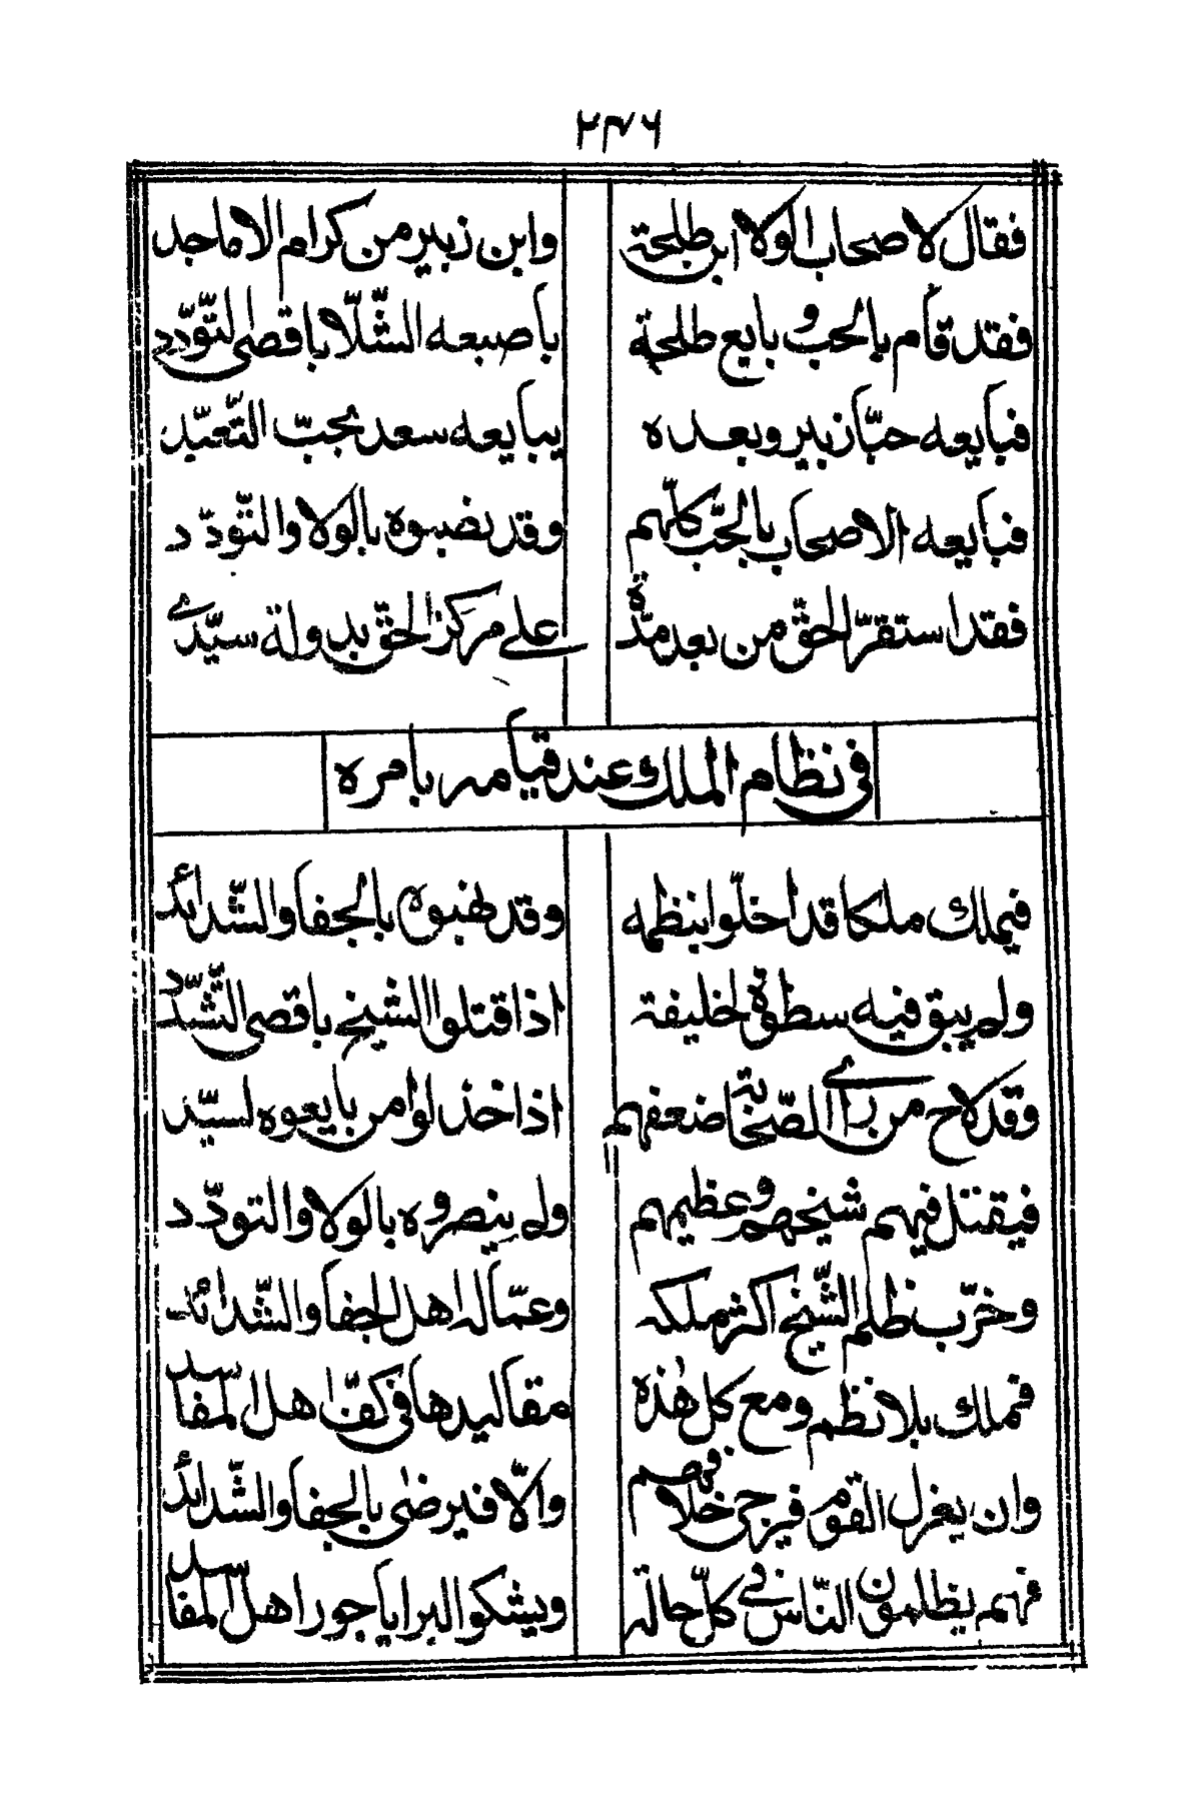 ٢٣٦
فقال لاصحاب الولا ابن طلحة وابن زبير من كرام الاماجد
فقد قام بالحب و بايع طلحة باصبعه الشلّا باقصى التّودّد
فبايعه حبّا زبير وبعده يبايعه سعد بحبّ التّعبّد
فبايعه الاصحاب بالحبّ كلّهم وقد نصبوه بالولا والتّودّد
فقد استقرّ الحقّ من بعد مدّة على مركز الحقّ بدولة سيّدي
في نظام الملك عند قيامه بامره
فيملك ملكا قد اخلّوا بنظمه وقد نهبوه بالجفا والشّدائد
ولم يبق فيه سطوة لخليفة اذا قتلوا الشيخ باقصى التّشدّد
وقد لاح من رأي الصّحابة ضعفهم اذا خذلوا من بايعوه لسيّد
فيقتل فيهم شيخهم وعظيمهم ولم ينصروه بالولا والتودّد
وخرّب ظلم الشّيخ اكثر ملكه وعمّاله اهل الجفا والشّدائد
فتملك بلا نظم ومع كل هذه مقاليدها في كفّ اهل المفاسد
وان يعزل القوم فيرجى خلافهم والّا فيرضى بالجفا والشّدائد
فهم يظلمون النّاس في كلّ حالة ويشكو البرايا جور اهل المفاسد